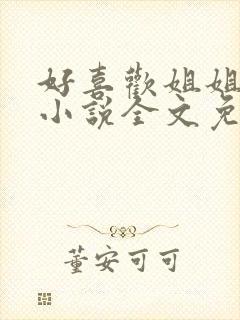 好喜歡姐姐
小說全文免
董安可可